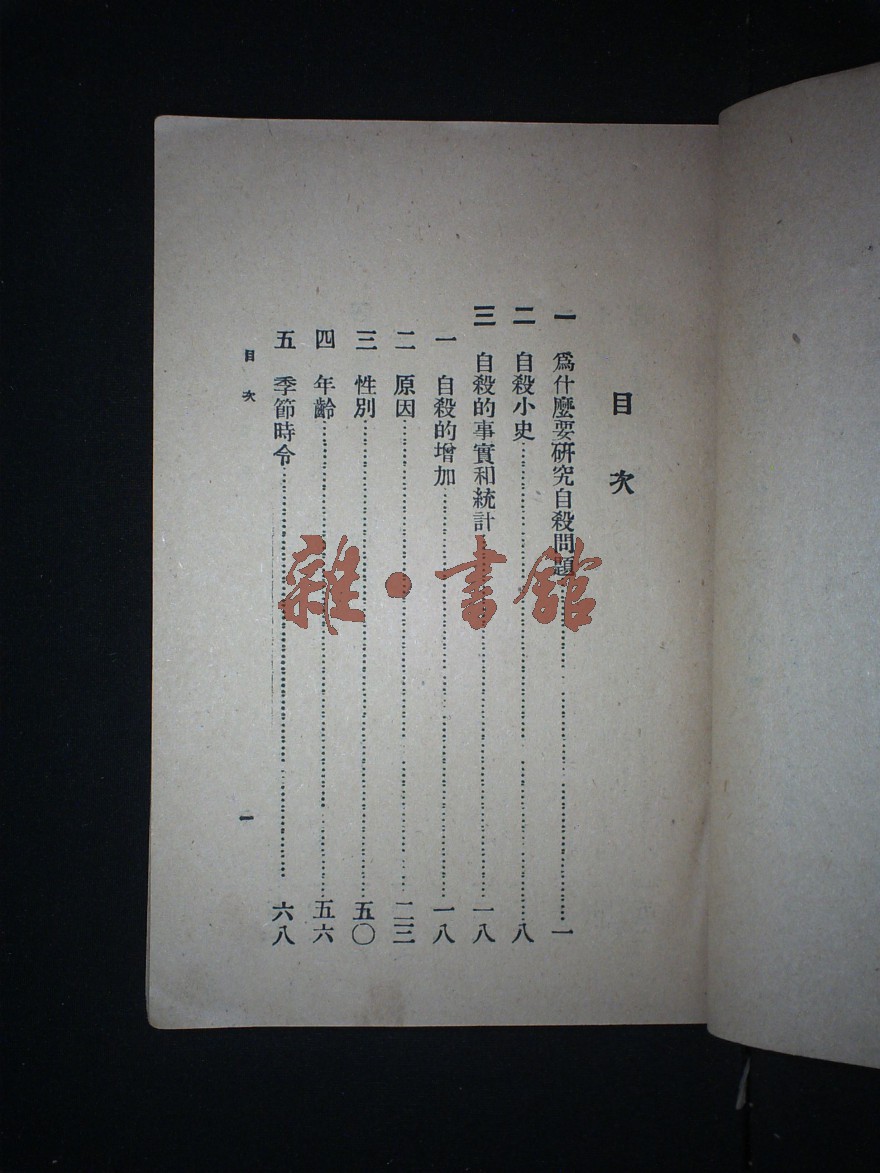 目次
一 爲什麼要研究自殺問題……一
二 自殺小史……八
三 自殺的事實和統計……一八
一 自殺的增加……一八
二 原因……二三
三 性別……五〇
四 年齡……五六
五 季節時令……六八
目次
一
雜·書館